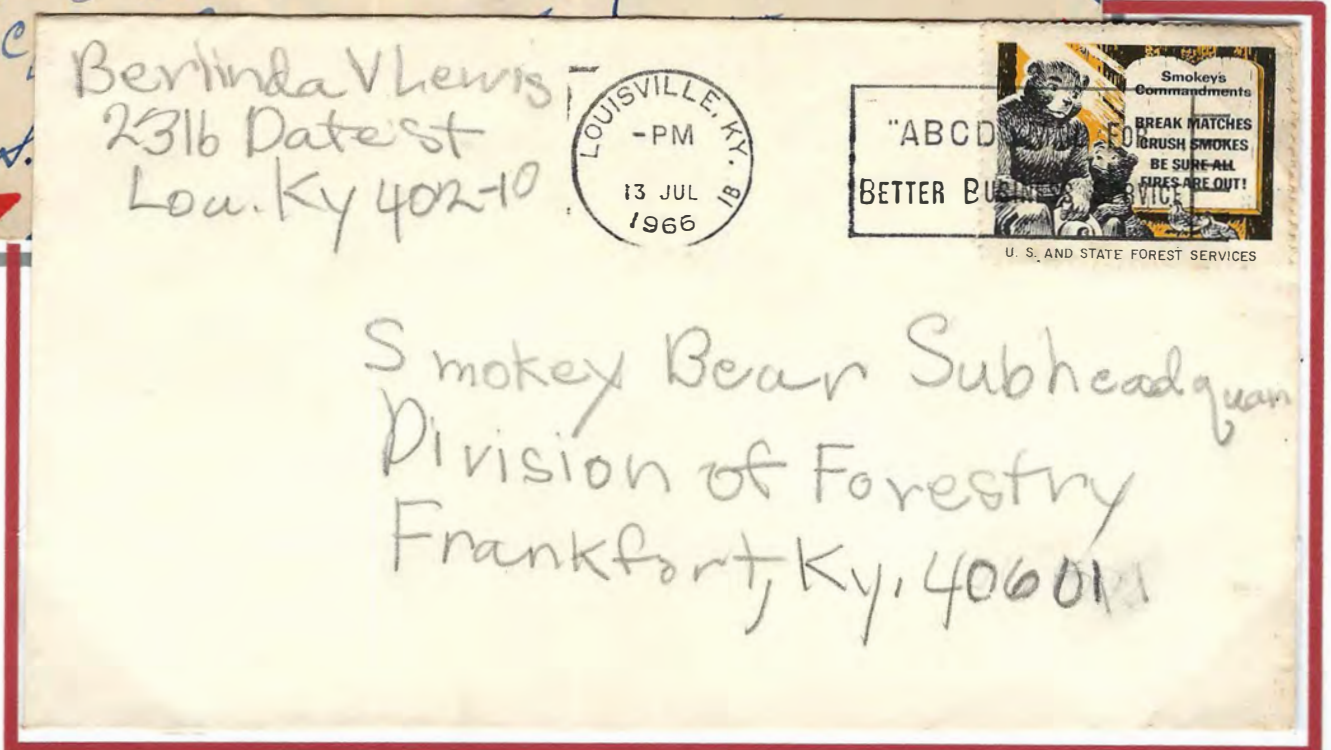 Berlinda V Lewis
2316 Date st
Lou. Ky 402-10
LOUISVILLE, KY.
-PM
13 JUL
1966
1B
"ABCD FOR
BETTER BUSINESS SERVICE
Smokey's
Commandments
BREAK MATCHES
CRUSH SMOKES
BE SURE ALL
FIRES ARE OUT!
U. S. AND STATE FOREST SERVICES
Smokey Bear Subheadquar
Division of Forestry
Frankfort, Ky. 40601